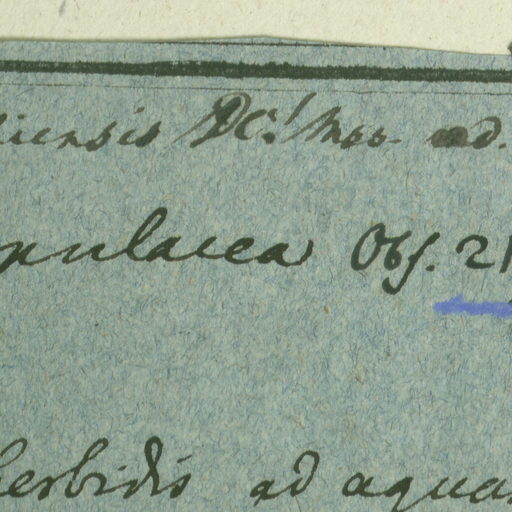 iensis DC! mss. ad.
pulacea Obs. 21
herbidis ad aquas